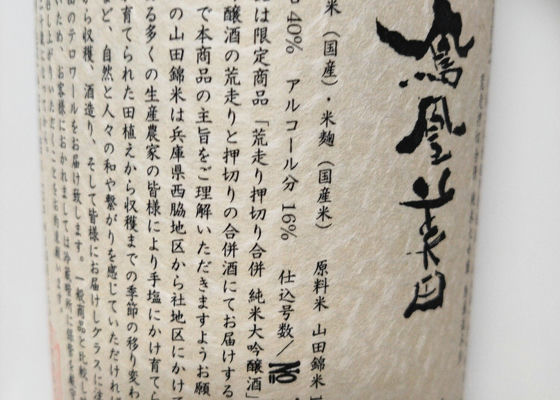 鳳凰美田
米（国産）・米麹（国産米）　原料米 山田錦米
40%　アルコール分 16%　仕込号数／No
は限定商品「荒走り押切り合併 純米大吟醸酒」
醸酒の荒走りと押切りの合併酒にてお届けする
で本商品の主旨をご理解いただきますようお願
の山田錦米は兵庫県西脇地区から社地区にかけ
る多くの生産農家の皆様により手塩にかけ育てら
育てられた田植えから収穫までの季節の移り変わ
ど、自然と人々の和や繋がりを感じていただければ
から収穫、酒造り、そして皆様にお届けしグラスに注
のテロワールをお届け致します。一般商品と比較し
ため、お客様におかれましては冷蔵